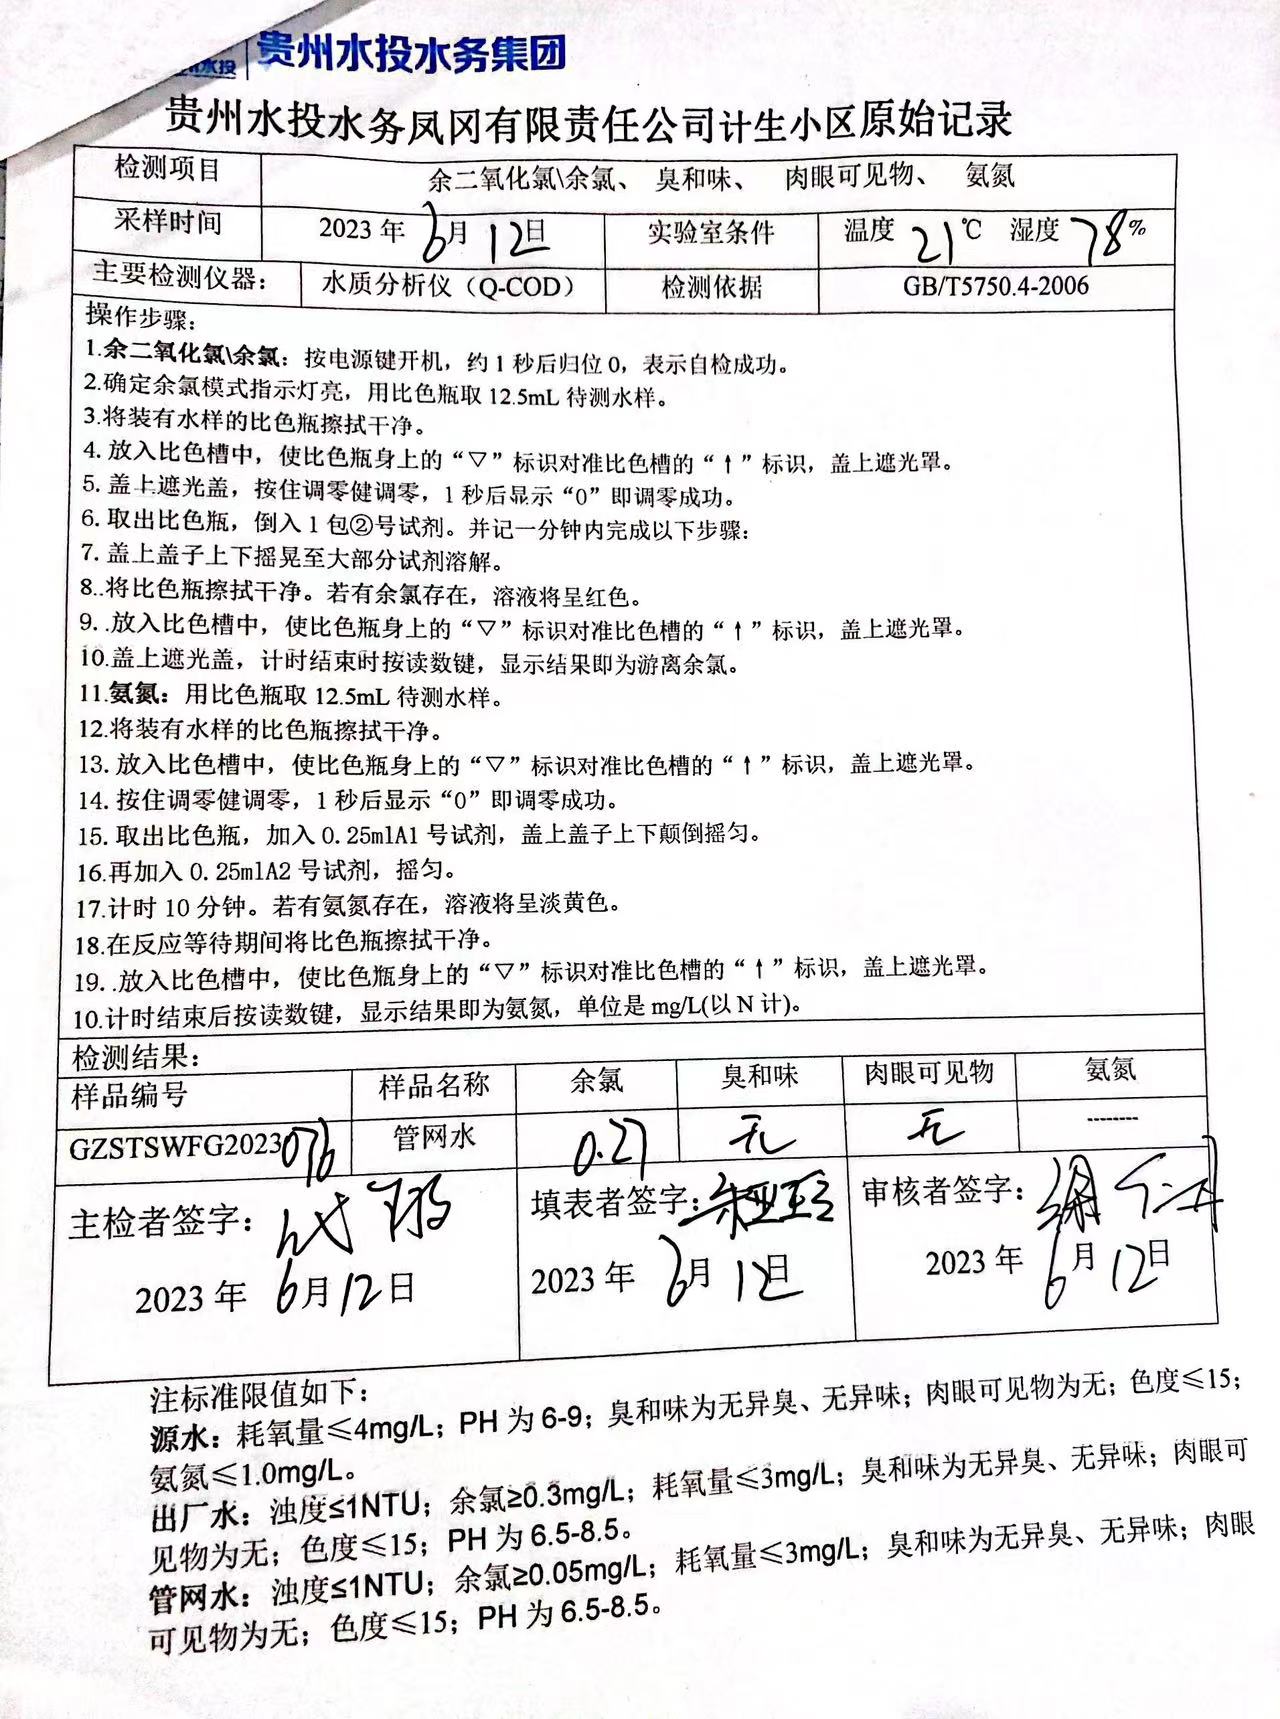 水投 贵州水投水务集团
贵州水投水务凤冈有限责任公司计生小区原始记录
检测项目 余二氧化氯\余氯、 臭和味、 肉眼可见物、 氨氮
采样时间 2023年6月12日 实验室条件 温度21℃ 湿度78%
主要检测仪器： 水质分析仪（Q-COD） 检测依据 GB/T5750.4-2006
操作步骤：
1.余二氧化氯\余氯：按电源键开机，约1秒后归位0，表示自检成功。
2.确定余氯模式指示灯亮，用比色瓶取12.5mL待测水样。
3.将装有水样的比色瓶擦拭干净。
4.放入比色槽中，使比色瓶身上的“▽”标识对准比色槽的“↑”标识，盖上遮光罩。
5.盖上遮光盖，按住调零健调零，1秒后显示“0”即调零成功。
6.取出比色瓶，倒入1包②号试剂。并记一分钟内完成以下步骤：
7.盖上盖子上下摇晃至大部分试剂溶解。
8..将比色瓶擦拭干净。若有余氯存在，溶液将呈红色。
9..放入比色槽中，使比色瓶身上的“▽”标识对准比色槽的“↑”标识，盖上遮光罩。
10.盖上遮光盖，计时结束时按读数键，显示结果即为游离余氯。
11.氨氮：用比色瓶取12.5mL待测水样。
12.将装有水样的比色瓶擦拭干净。
13.放入比色槽中，使比色瓶身上的“▽”标识对准比色槽的“↑”标识，盖上遮光罩。
14.按住调零健调零，1秒后显示“0”即调零成功。
15.取出比色瓶，加入0.25mlA1号试剂，盖上盖子上下颠倒摇匀。
16.再加入0.25mlA2号试剂，摇匀。
17.计时10分钟。若有氨氮存在，溶液将呈淡黄色。
18.在反应等待期间将比色瓶擦拭干净。
19..放入比色槽中，使比色瓶身上的“▽”标识对准比色槽的“↑”标识，盖上遮光罩。
10.计时结束后按读数键，显示结果即为氨氮，单位是mg/L(以N计)。
检测结果：
样品编号 样品名称 余氯 臭和味 肉眼可见物 氨氮
GZSTSWFG2023076 管网水 0.27 无 无 --------
主检者签字： 填表者签字： 审核者签字：
2023年6月12日 2023年6月12日 2023年6月12日
注标准限值如下：
源水：耗氧量≤4mg/L；PH为6-9；臭和味为无异臭、无异味；肉眼可见物为无；色度≤15；
氨氮≤1.0mg/L。
出厂水：浊度≤1NTU；余氯≥0.3mg/L；耗氧量≤3mg/L；臭和味为无异臭、无异味；肉眼可
见物为无；色度≤15；PH为6.5-8.5。
管网水：浊度≤1NTU；余氯≥0.05mg/L；耗氧量≤3mg/L；臭和味为无异臭、无异味；肉眼
可见物为无；色度≤15；PH为6.5-8.5。